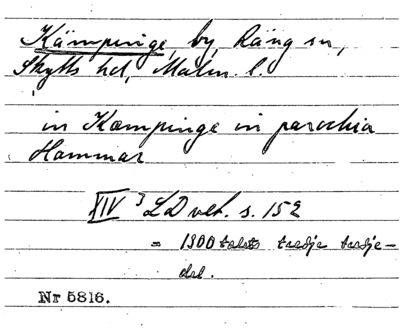 Kämpinge, by, Räng sn,
Skytts hd, Malm. l.
in Kæmpinge in parochia
Hammar
XIV 3 LD vet. s. 152
= 1300 talets tredje tredje-
del.
Nr 5816.